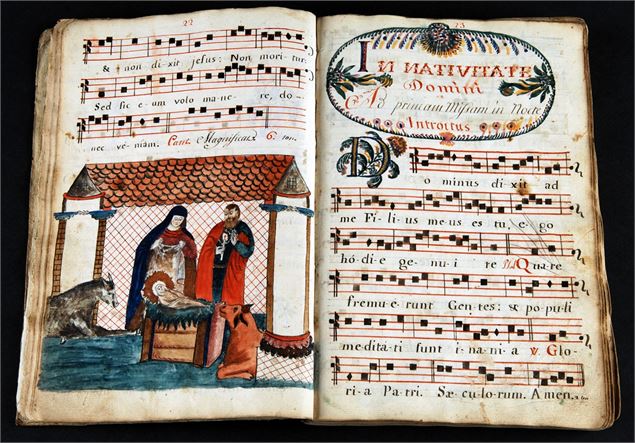 22
& non dixit jesus: Non mori tur:
Sed sic e um volo ma ne re, do
nec vé niam. Cant. Magnificat 6. ton.
23
IN NATIVITATE
Domini
Ad primam Missam in Nocte
Introitus
Do minus di xit ad
me Fi li us me us es tu, e go
hó di e ge nu i te Ps. Qua re
fre mu e runt Gen tes: & po pu li
me di tá ti sunt i na ni a ℣. Glo
ri a Pa tri. Sæ cu lo rum. A men.